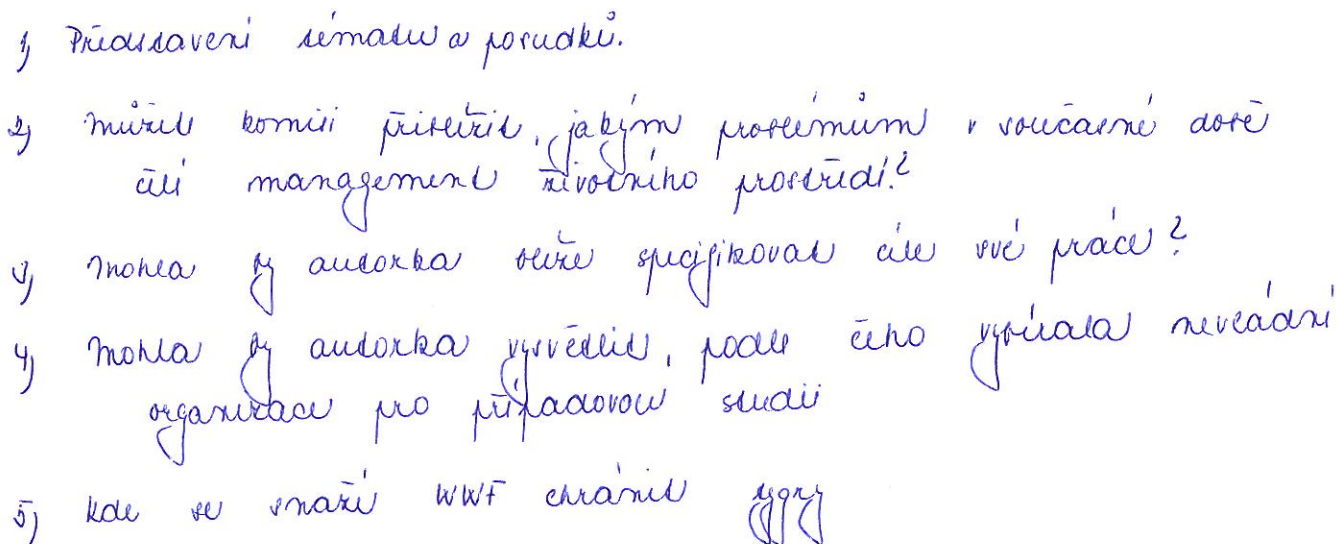 1) Představení tématu a posudků.
2) Můžete komisi přiblížit, jakým problémům v současné době
čelí management životního prostředí?
3) Mohla by autorka blíže specifikovat cíle své práce?
4) Mohla by autorka vysvětlit, podle čeho vybírala nevládní
organizace pro případovou studii
5) Kde se snaží WWF chránit tygry